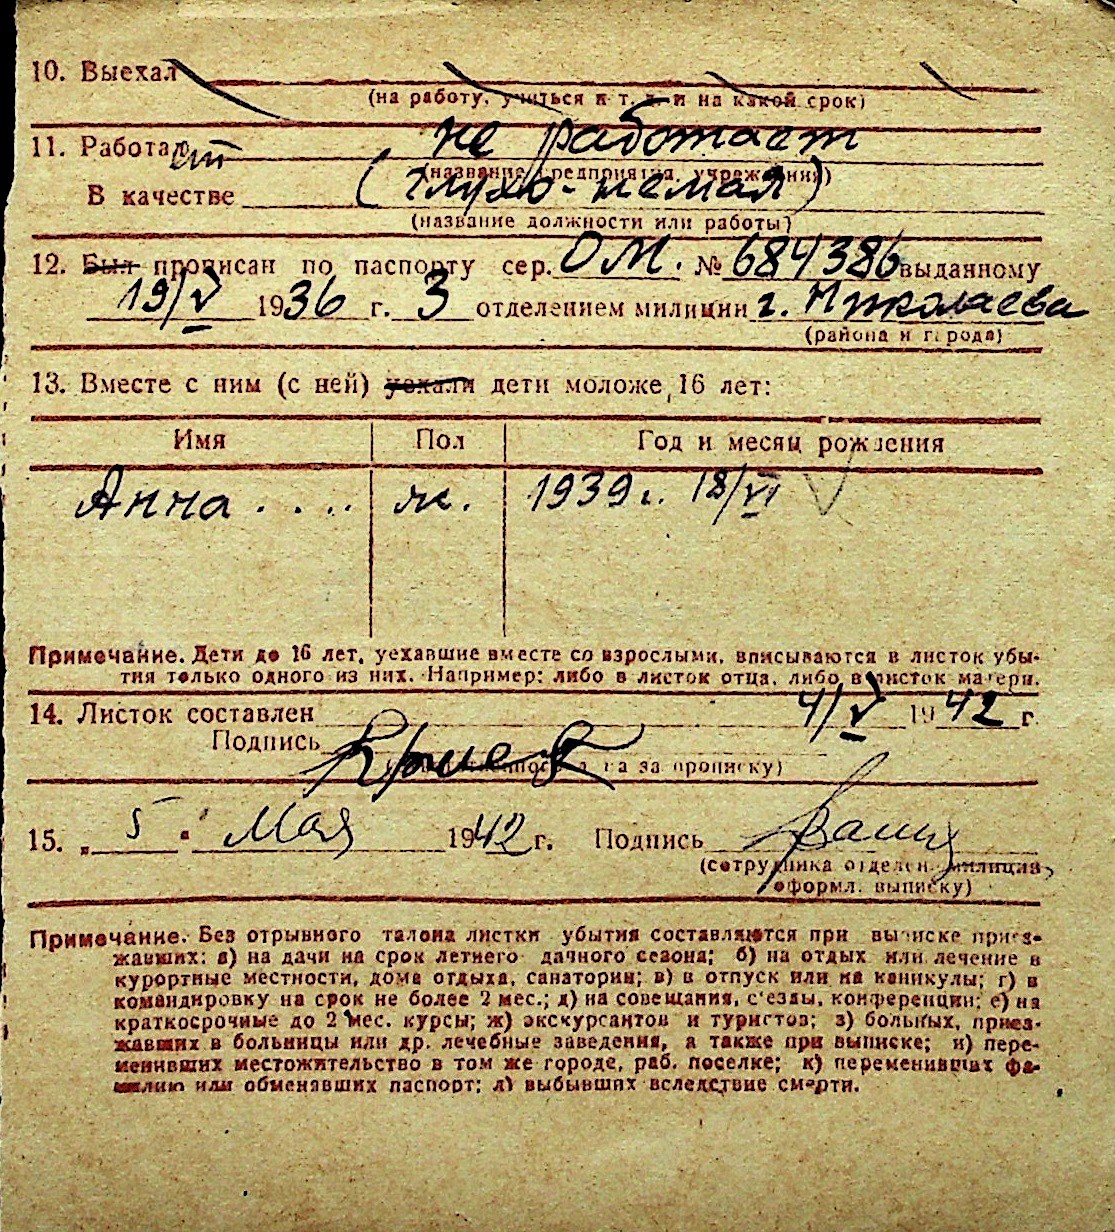 10. Выехал
(на работу, учиться и т. д. и на какой срок)
11. Работает не работает
(название предприятия, учреждения)
В качестве (глухо-немая)
(название должности или работы)
12. Был прописан по паспорту сер. ОМ. № 684386 выданному
19/V 1936 г. 3 отделением милиции г. Николаева
(района и города)
13. Вместе с ним (с ней) уехали дети моложе 16 лет:
Имя Пол Год и месяц рождения
Анна . . . . ж. 1939 г. 18/VI
Примечание. Дети до 16 лет, уехавшие вместе со взрослыми, вписываются в листок убы-
тия только одного из них. Например: либо в листок отца, либо в листок матери.
14. Листок составлен 4/V 1942 г.
Подпись
за прописку)
15. „ 5 " Мая 1942 г. Подпись
(сотрудника отделен. милиции,
оформл. выписку)
Примечание. Без отрывного талона листки убытия составляются при выписке приез-
жавших: а) на дачи на срок летнего дачного сезона; б) на отдых или лечение в
курортные местности, дома отдыха, санатории; в) в отпуск или на каникулы; г) в
командировку на срок не более 2 мес.; д) на совещания, с'езды, конференции; е) на
краткосрочные до 2 мес. курсы; ж) экскурсантов и туристов; з) больных, приез-
жавших в больницы или др. лечебные заведения, а также при выписке; и) пере-
менивших местожительство в том же городе, раб. поселке; к) переменивших фа-
милию или обменявших паспорт; л) выбывших вследствие смерти.